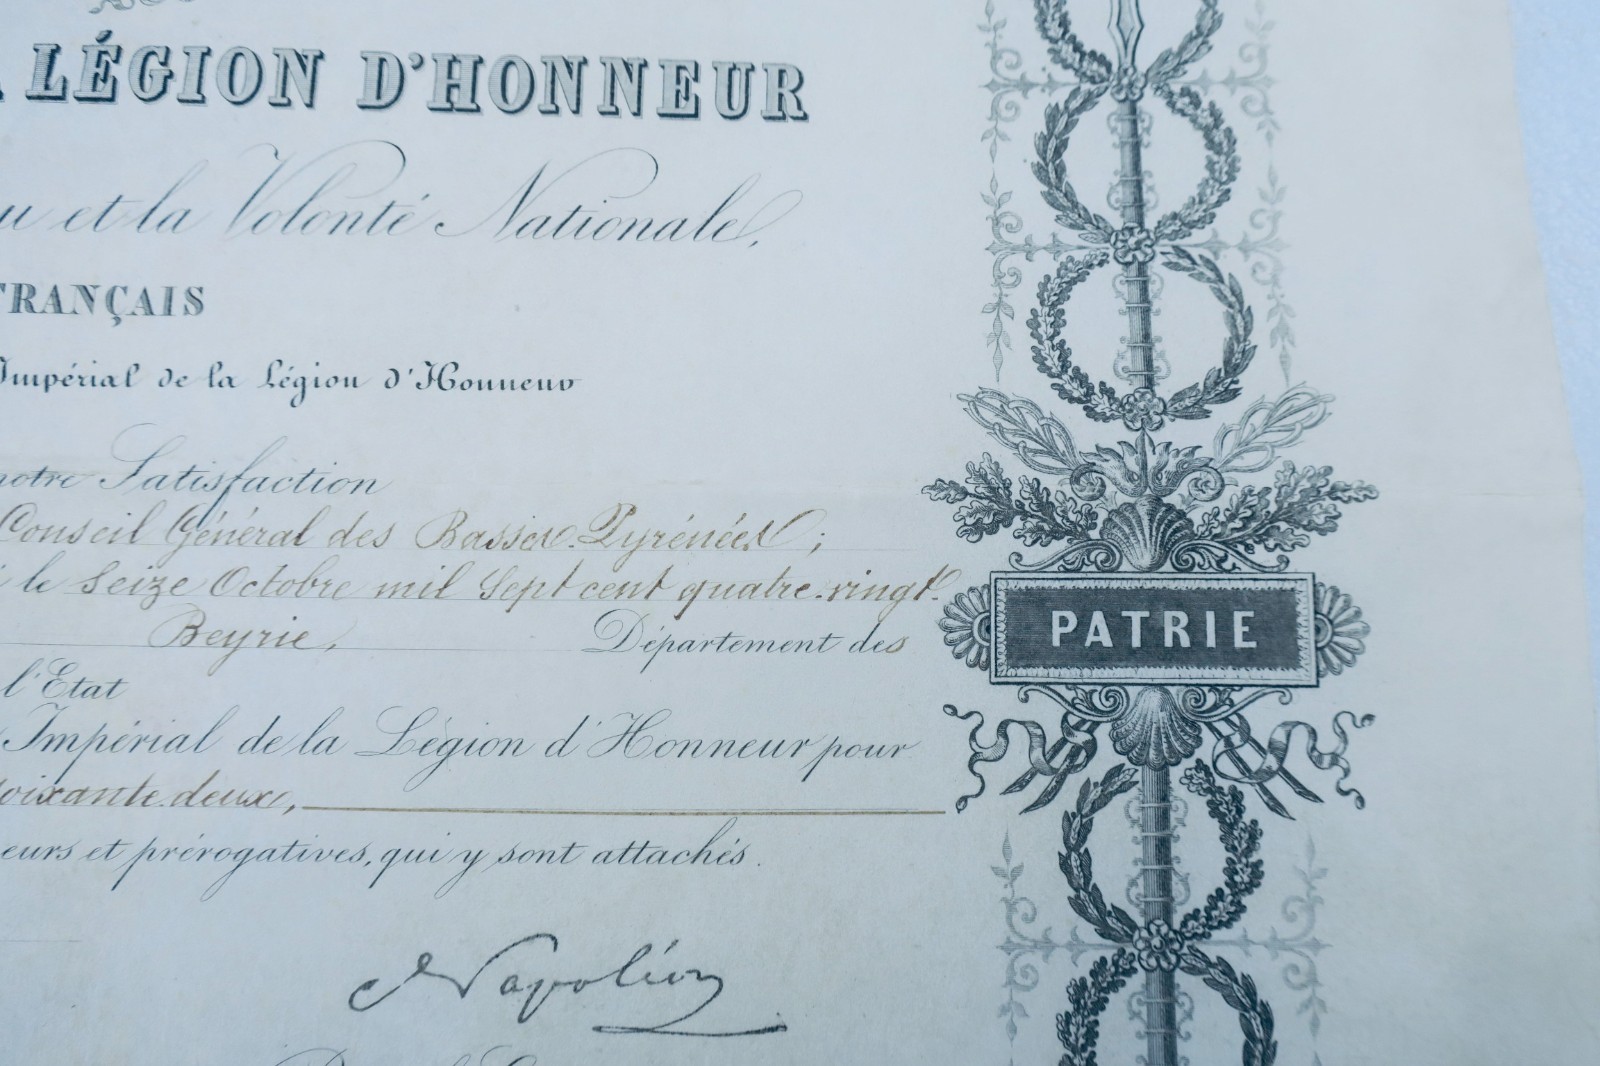 LÉGION D'HONNEUR
et la Volonté Nationale,
FRANÇAIS
Impérial de la Légion d'Honneur
notre Satisfaction
Conseil Général des Basses-Pyrénées;
le Seize Octobre mil Sept cent quatre-vingt-
Beyrie, Département des
PATRIE
l'Etat
Impérial de la Légion d'Honneur pour
oixante-deux,
eurs et prérogatives, qui y sont attachés.
Napoléon